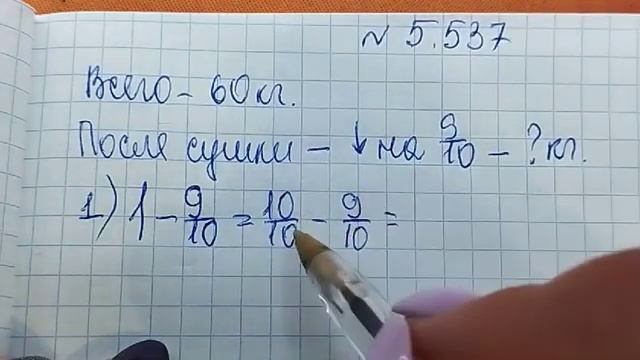 № 5.537
Всего - 60 кг.
После сушки - ↓ на 9/10 - ? кг.
1) 1 - 9/10 = 10/10 - 9/10 =